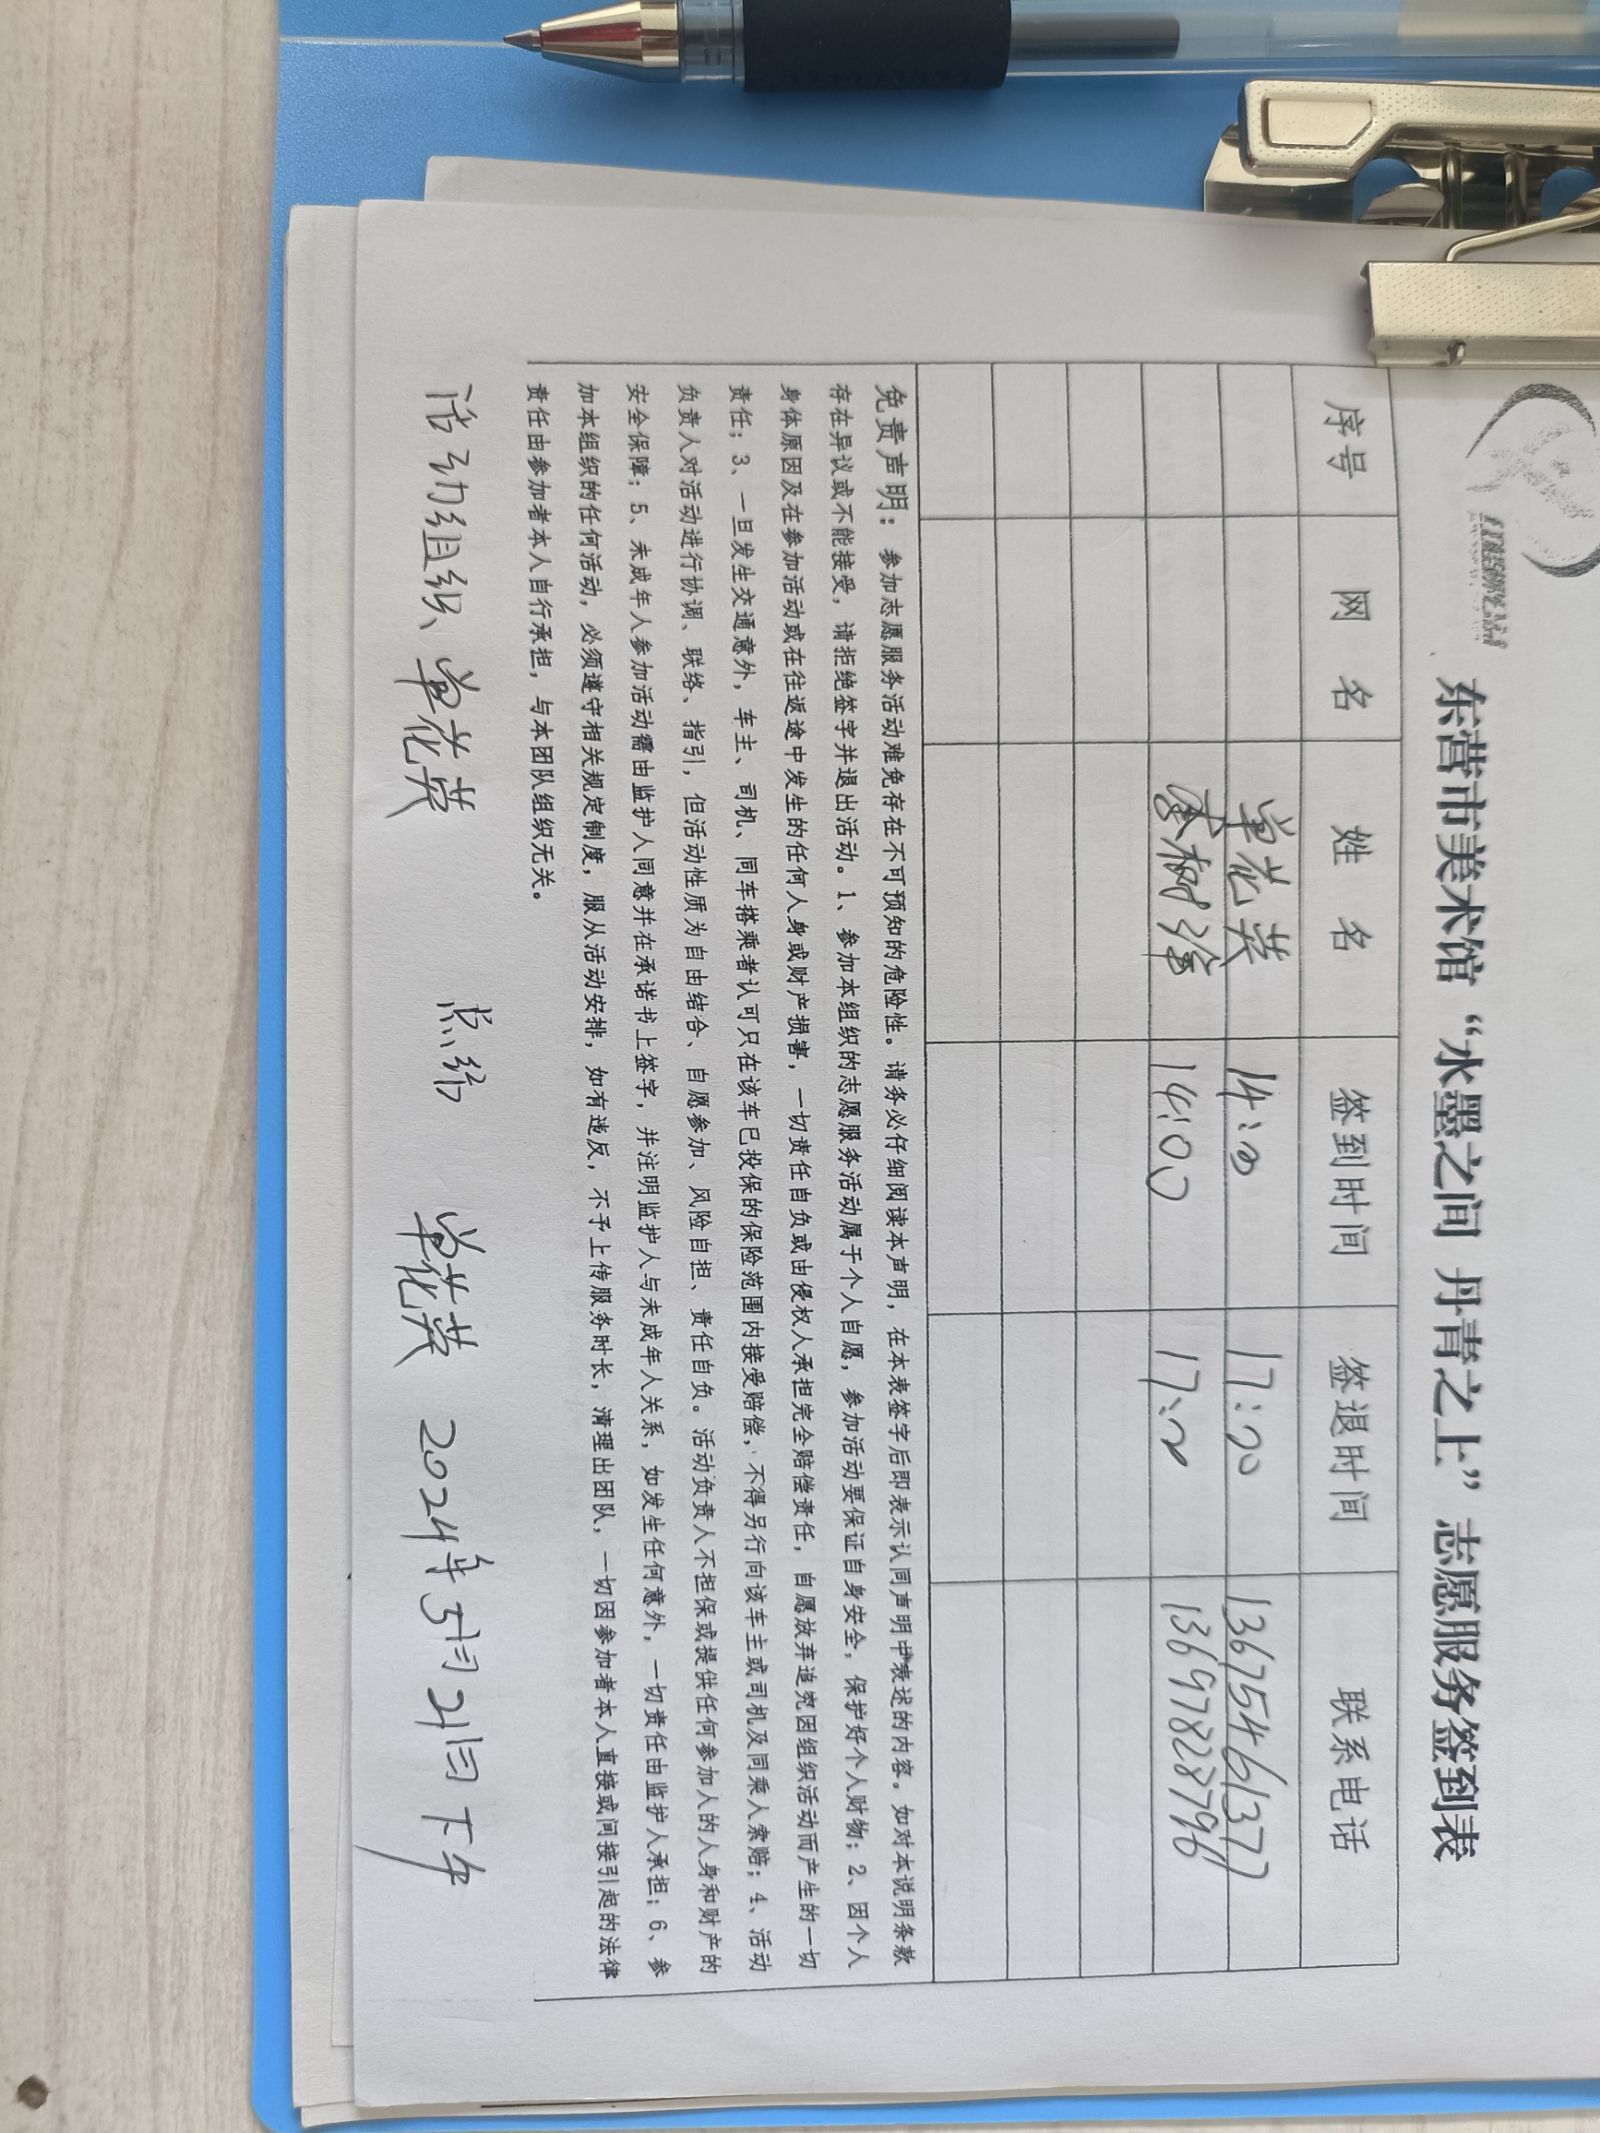 东营市美术馆“水墨之间 丹青之上”志愿服务签到表
序号 网名 姓名 签到时间 签退时间 联系电话
单花英 14:00 17:00 13675461377
14:00 17:00 13697828796
免责声明：参加志愿服务活动难免存在不可预知的危险性。请务必仔细阅读本声明，在本表签字后即表示认同声明中表述的内容。如对本说明条款
存在异议或不能接受，请拒绝签字并退出活动。1、参加本组织的志愿服务活动属于个人自愿，参加活动要保证自身安全，保护好个人财物；2、因个人
身体原因及在参加活动或在往返途中发生的任何人身或财产损害，一切责任自负或由侵权人承担完全赔偿责任，自愿放弃追究因组织活动而产生的一切
责任；3、一旦发生交通意外，车主、司机、同车搭乘者认可只在该车已投保的保险范围内接受赔偿，不得另行向该车主或司机及同乘人索赔；4、活动
负责人对活动进行协调、联络、指引，但活动性质为自由结合、自愿参加、风险自担、责任自负。活动负责人不担保或提供任何参加人的人身和财产的
安全保障；5、未成年人参加活动需由监护人同意并在承诺书上签字，并注明监护人与未成年人关系，如发生任何意外，一切责任由监护人承担；6、参
加本组织的任何活动，必须遵守相关规定制度，服从活动安排，如有违反，不予上传服务时长，清理出团队，一切因参加者本人直接或间接引起的法律
责任由参加者本人自行承担，与本团队组织无关。
活动组织、单花英 点编 单花英 2024年5月21日下午